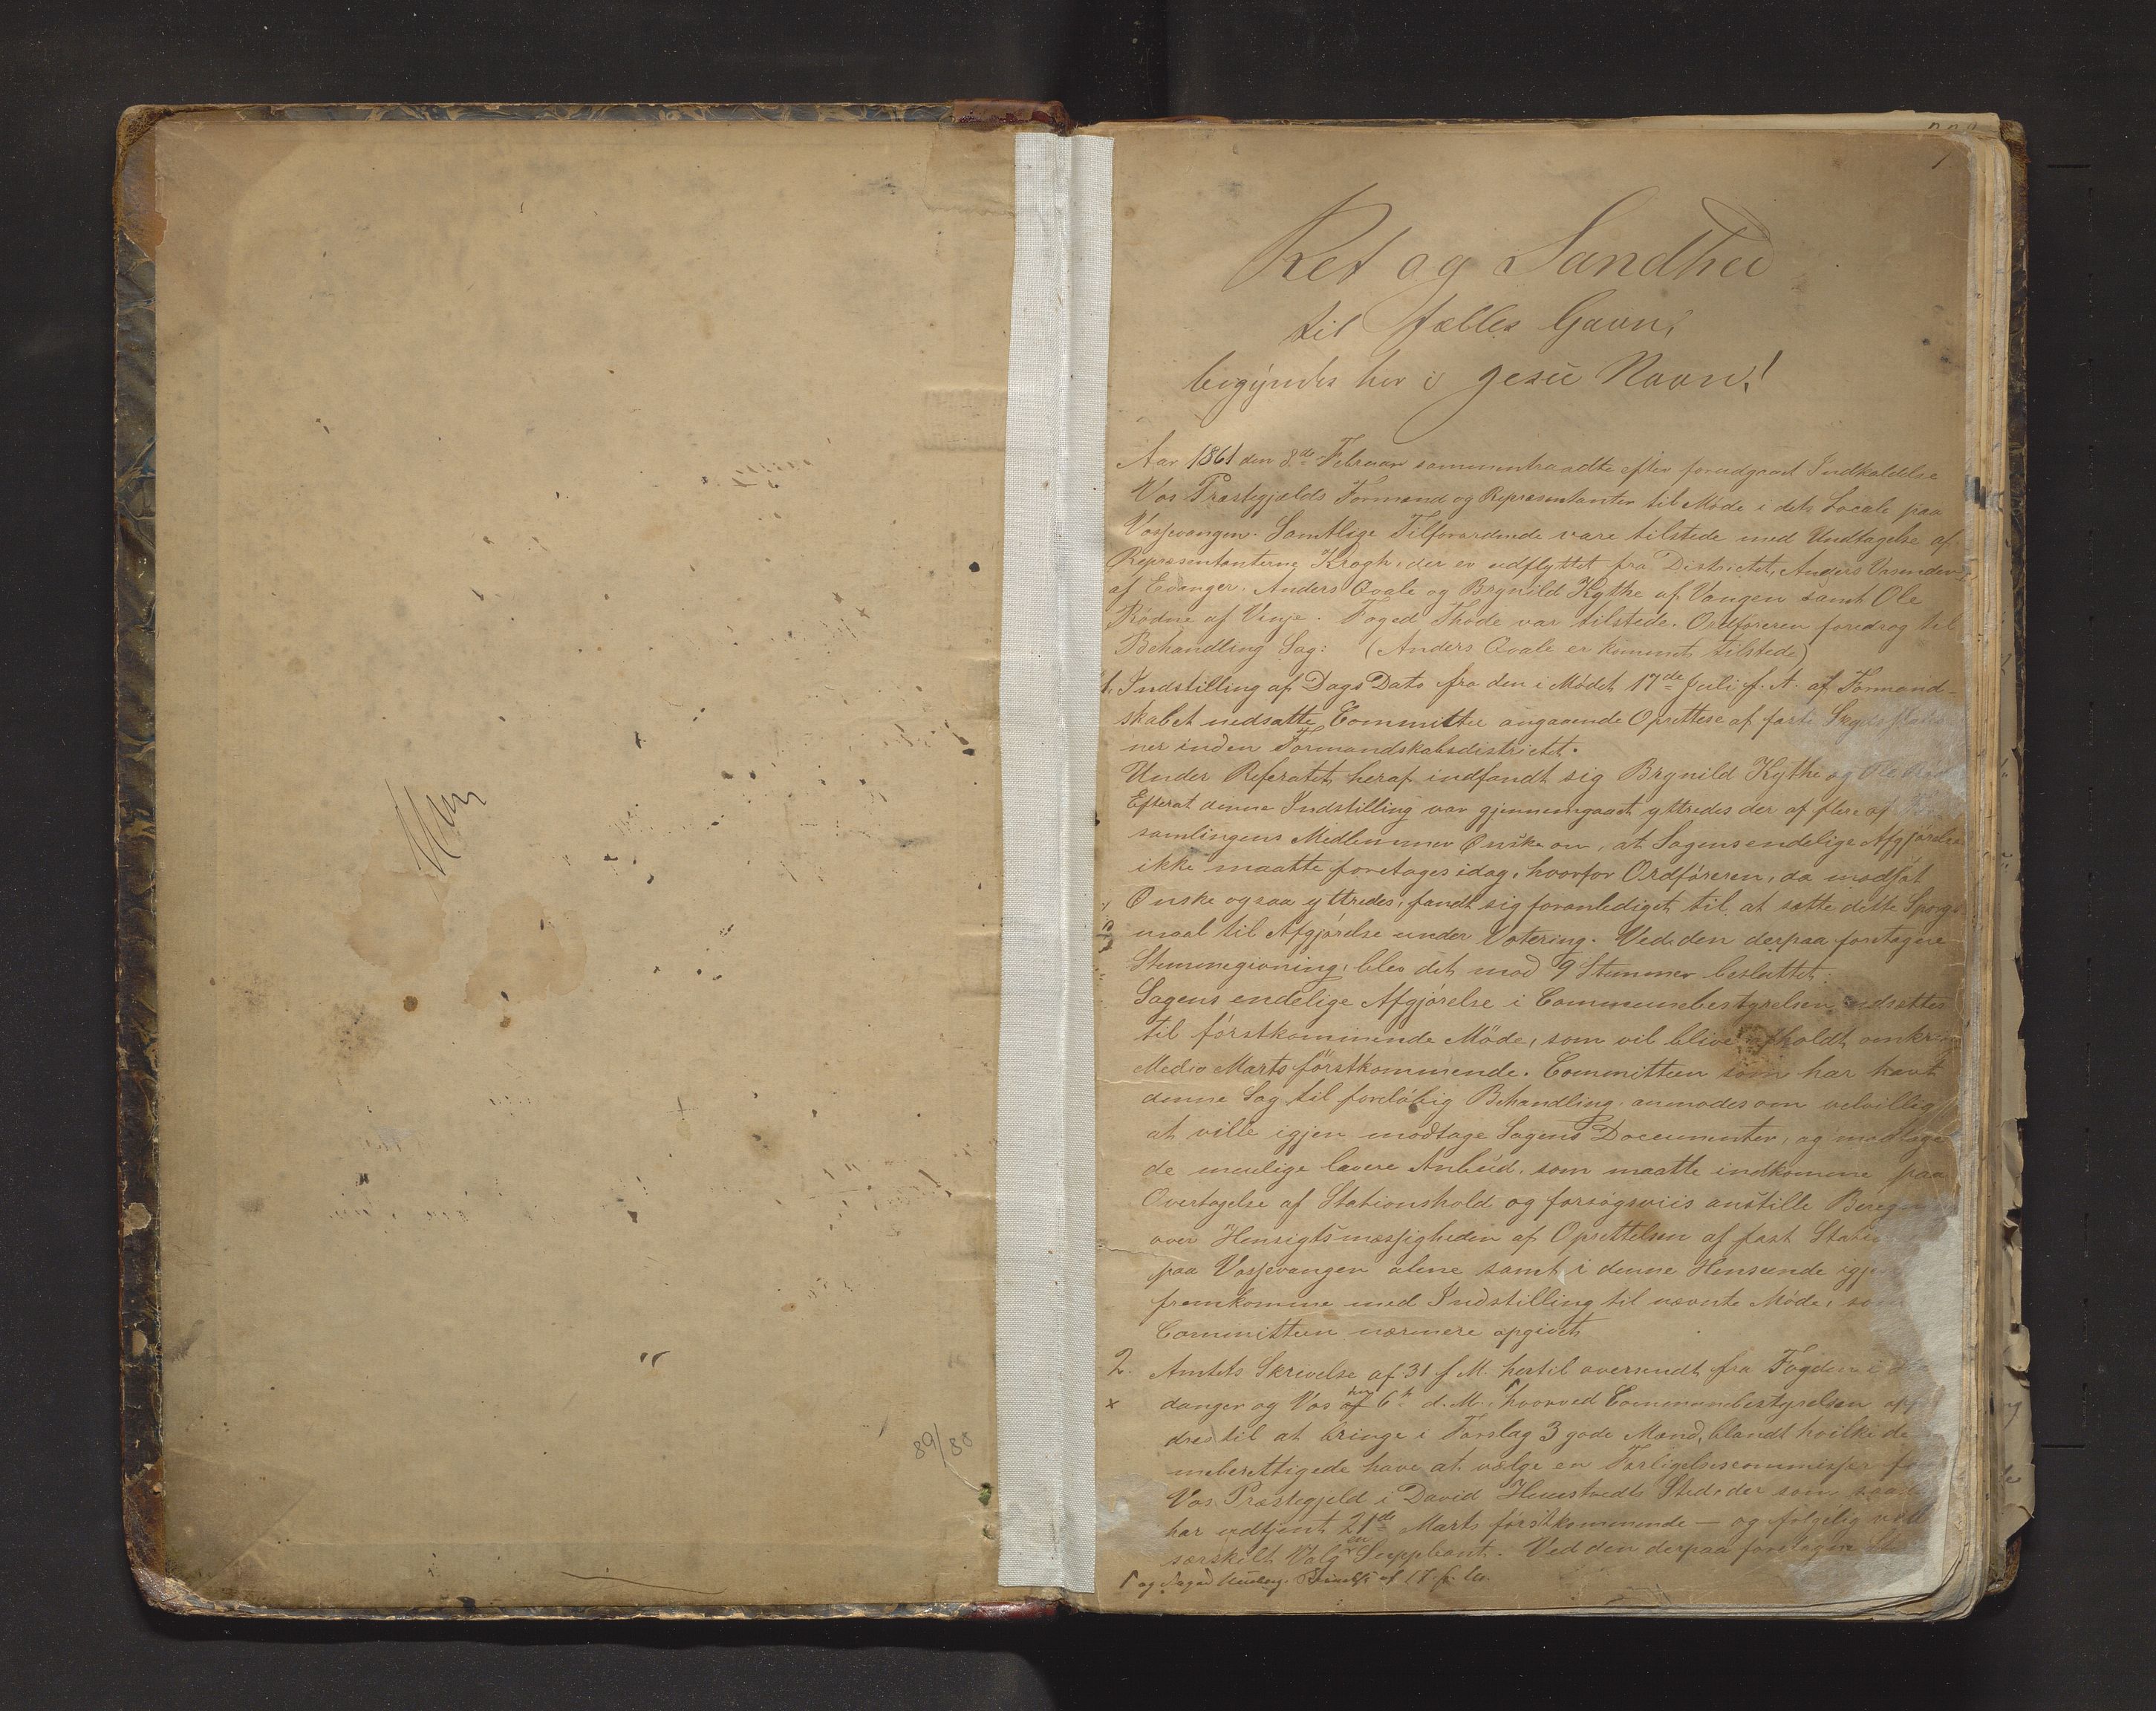 89/80
1
Ret og Sandhed
til fælles Gavn,
begyndes her i Jesu Navn!
Aar 1861 den 8de Februar sammentraadte efter forudgaaet Indkaldelse
Vos Præstegjelds Formænd og Repræsentanter til Møde i dets Locale paa
Vossevangen. Samtlige Tilforordnede vare tilstede med Undtagelse af
Repræsentanterne Krogh, der er udflyttet fra Districtet, Anders
af Evanger. Anders Qvale og Brynild Kythe af Vangen samt Ole
Rødne af Vinje. Foged Thode var tilstede. Ordføreren foredrog til
Behandling Sag: (Anders Qvale er kommet tilstede)
1, Indstilling af Dags Dato fra den i Mødet 17de Juli f. A. af Formand-
skabet nedsatte Committee angaaende Oprettese af faste Skyds
ner inden Formandskabsdistrictet.
Under Referatet heraf indfandt sig Brynild Kythe og Ole
Efterat denne Indstilling var gjennemgaaet yttredes der af flere af
samlingens Medlemmer Ønske om, at Sagens endelige Afgjørelse
ikke maatte foretages idag, hvorfor Ordføreren, da modsat
Ønske ogsaa yttredes, fandt sig foranlediget til at sætte dette Spørgs
maal til Afgjørelse under Votering. Ved den derpaa foretagne
Stemmegivning, blev det mod 9 Stemmer besluttet:
Sagens endelige Afgjørelse i Communebestyrelsen udsættes
til førstkommende Møde, som vil blive afholdt omkring
Medio Marts førstkommende. Committeen som har havt
denne Sag til foreløbig Behandling anmodes om velvillig
at ville igjen modtage Sagens Documenter, og modtage
de muelige lavere Anbud, som maatte indkomme paa
Overtagelse af Stationshold og forsøgsviis anstille Beregn
over Hensigtsmæssigheden af Oprettelsen af fast Statio
paa Vossevangen alene samt i denne Henseende igjen
fremkomme med Indstilling til nævnte Møde, som
Committeen nærmere opgivet
2. Amtets Skrivelse af 31 f. M. hertil oversendt fra Fogden i
x danger og Vos den 6te d. M., hvorved Communebestyrelsen opfor
dres til at bringe i Forslag 3 gode Mænd, blandt hvilke de
meberettigede have at vælge en Forligelsescommissær for
Vos Præstegjeld i David Sted, der som saadan
har udtjent 21de Marts førstkommende — og følgelig
særskilt Valg en Suppleant. Ved den derpaa foretagne
og Foged af 17. f. M.